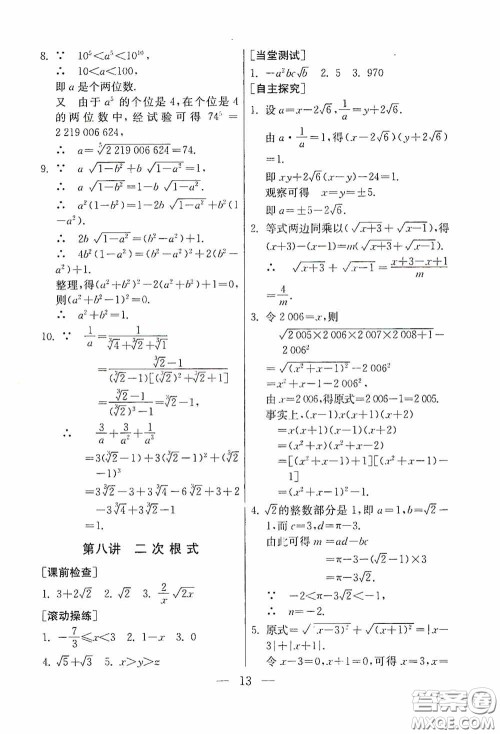 8. ∵ 10⁵<a⁵<10¹⁰,
∴ 10<a<100,
即 a 是个两位数.
又 由于 a⁵ 的个位是 4,在个位是 4
的两位数中,经试验可得 74⁵ =
2 219 006 624;
∴ a=⁵√2 219 006 624=74.
9. ∵ a√1-b²+b√1-a²=1,
∴ a√1-b²=1-b√1-a²,
∴ a²(1-b²)=1-2b√1-a²+b²(1
-a²).
∴ 2b√1-a²=(b²-a²)+1,
∴ 4b²(1-a²)=(b²-a²)²+2(b²-
a²)+1.
整理,得(a²+b²)²-2(a²+b²)+1=0,
则(a²+b²-1)²=0.
∴ a²+b²=1.
10. ∵ 1/a=1/(³√4+³√2+1)
=(³√2-1)/((³√2-1)[(³√2)²+³√2+1])
=(³√2-1)/((³√2)³-1)=³√2-1,
∴ 3/a+3/a²+1/a³
=3(³√2-1)+3(³√2-1)²+(³√2
-1)³
=3³√2-3+3³√4-6³√2+3+2
-3³√4+3³√2-1=1.
第八讲 二次根式
[课前检查]
1. 3+2√2 2. √2 3. 2/x √2x
[滚动操练]
1. -7/3≤x<3 2. 1-x 3. 0
4. √5+√3 5. x>y>z
[当堂测试]
1. -a²bc√b 2. 5 3. 970
[自主探究]
1. 设 a=x-2√6,1/a=y+2√6.
由 a·1/a=1,得(x-2√6)(y+2√6)
=1.
即 xy+2√6(x-y)-24=1.
观察可得 x=y=±5.
即 a=±5-2√6.
2. 等式两边同乘以(√x+3+√x-1),得
(x+3)-(x-1)=m(√x+3+√x-1).
∴ √x+3+√x-1=(x+3-x+1)/m
=4/m.
3. 令 2 006=x,则
√2 005×2 006×2 007×2 008+1-
2 006²
=√(x²+x-1)²-2 006²
=x²+x-1-2 006².
由 x=2 006,得原式=2 006-1=2 005.
事实上,(x-1)x(x+1)(x+2)
=x(x+1)(x-1)(x+2)
=(x²+x)(x²+x-2)
=[(x²+x-1)+1][(x²+x-1)
-1]
=(x²+x-1)²-1.
4. √2的整数部分是 1,即 a=1,b=√2-
1,而 c=3,d=π-3.
由此可得 m=ad-bc
=π-3-(√2-1)×3
=π-3√2.
∵ -2<π-3√2<-1,
∴ n=-2.
5. 原式=√(x-3)²+√(x+1)²=|x-
3|+|x+1|.
令 x-3=0,x+1=0,可得 x=3,x=
— 13 —
答案圈
MXQE.COM